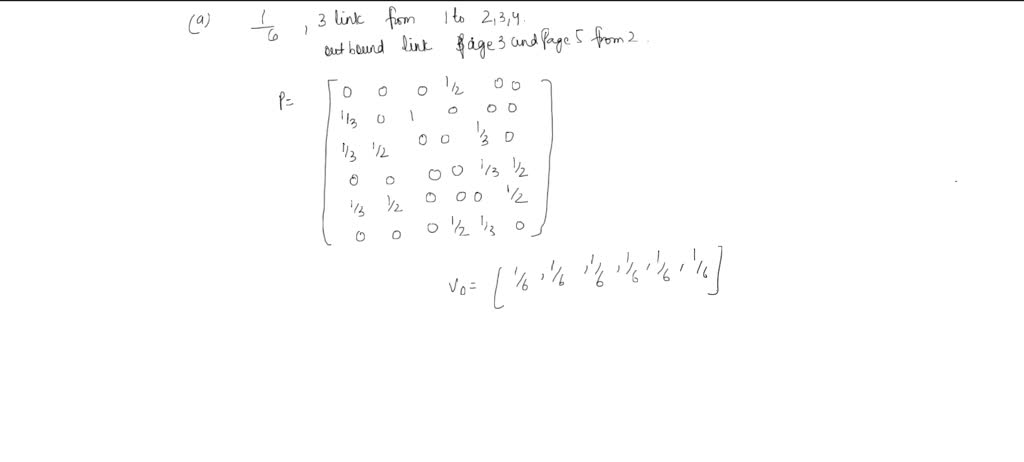 (a) 1/6 , 3 link from 1 to 2,3,4.
outbound link Page 3 and Page 5 from 2.
P=
0 0 0 1/2 0 0
1/3 0 1 0 0 0
1/3 1/2 0 0 1/3 0
0 0 0 0 1/3 1/2
1/3 1/2 0 0 0 1/2
0 0 0 1/2 1/3 0
V0 = [ 1/6 , 1/6 , 1/6 , 1/6 , 1/6 , 1/6 ]